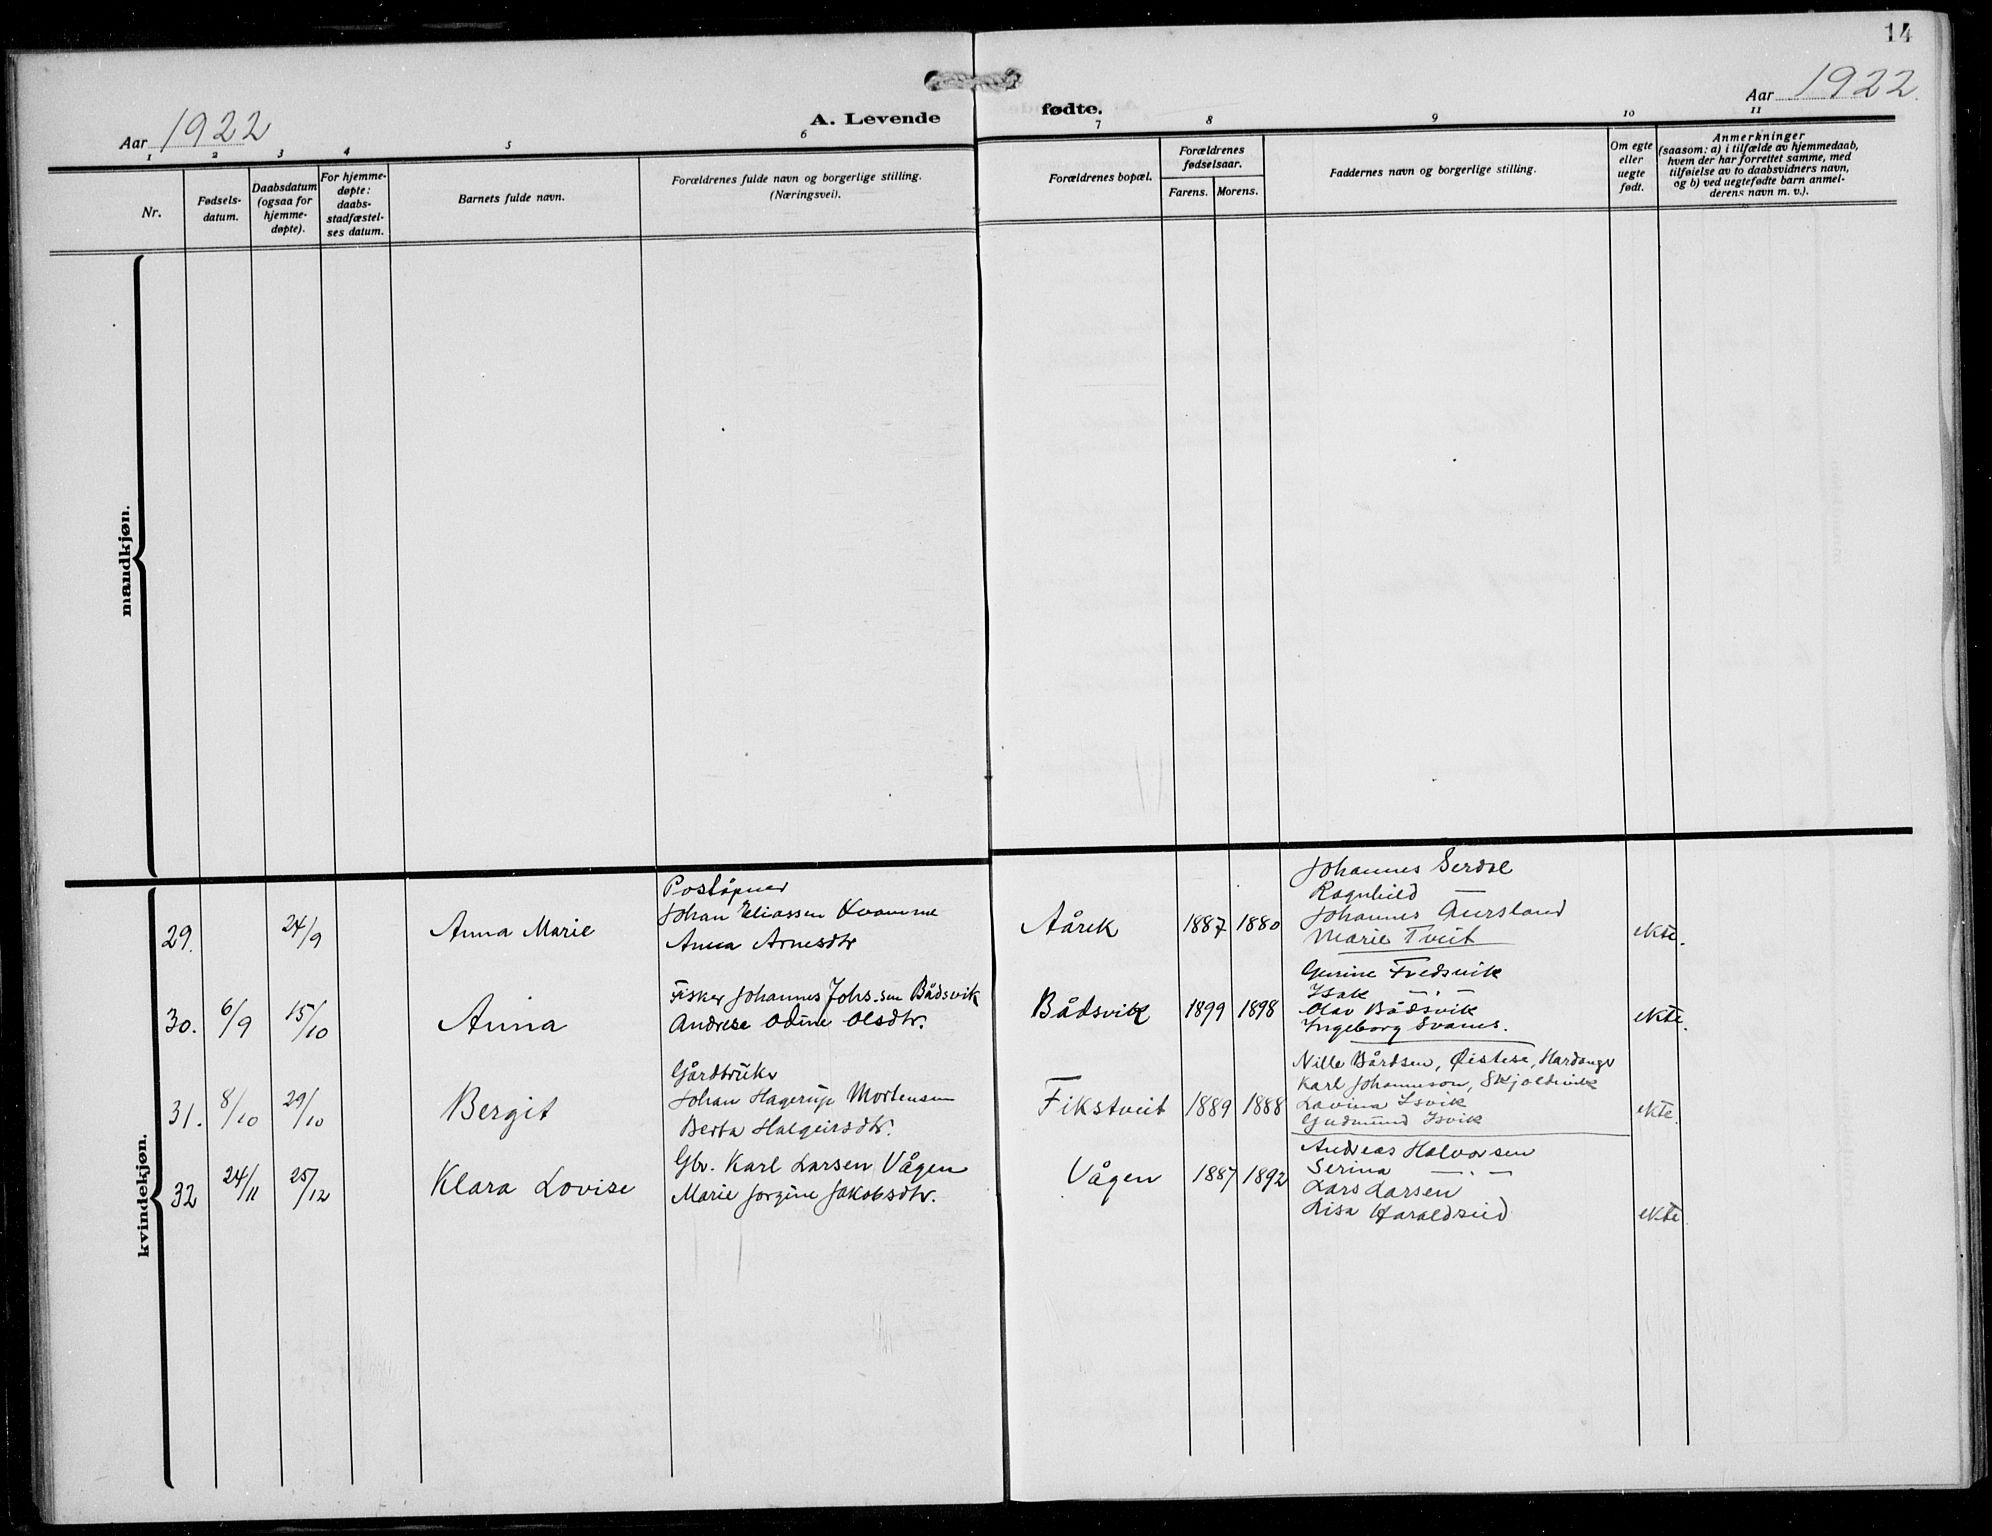 14
Aar 1922
A. Levende
fødte.
Aar 1922.
1 2 3 4 5 6 7 8 9 10 11
Nr.
Fødsels-
datum.
Daabsdatum
(ogsaa for
hjemme-
døpte).
For hjemme-
døpte:
daabs-
stadfæstel-
ses datum.
Barnets fulde navn.
Forældrenes fulde navn og borgerlige stilling.
(Næringsvei).
Forældrenes bopæl.
Forældrenes
fødselsaar.
Farens. Morens.
Faddernes navn og borgerlige stilling.
Om egte
eller
uegte
født.
Anmerkninger
(saasom: a) i tilfælde av hjemmedaab,
hvem der har forrettet samme, med
tilføielse av to daabsvidners navn,
og b) ved uegtefødte barn anmel-
derens navn m. v.).
mandkjøn.
kvindekjøn.
29.
24/9
Anna Marie
Poståpner
Johan Eliassen Kvamme
Anna Arnesdtr
Aårek
1887 1880
Johannes Serdal
Ragnhild —
Johannes Aursland
Marie Tveit
ekte.
30.
6/9
15/10
Anna
Fisker Johannes Johs.sen Bådsvik
Andrese Odine Olsdtr.
Bådsvik
1899 1898
Gurine Fredsvik
Isak — " —
Olav Bådsvik
Ingeborg Svanes.
ekte.
31.
8/10
29/10
Bergit
Gårdbruker
Johan Hagerup Mortensen
Berta Halgeirsdtr.
Fikstveit
1889 1888
Nille Bårdsen, Øistese, Hardanger
Karl Johannson, Skjoldevik
Lavina Isvik
Gudmund Isvik
ekte.
32
24/11
25/12
Klara Lovise
Gbr. Karl Larsen Vågen
Marie Jorgine Jakobsdtr.
Vågen
1887 1892
Andreas Halvorsen
Serina — " —
Lars Larsen
Lisa Haraldseid
ekte